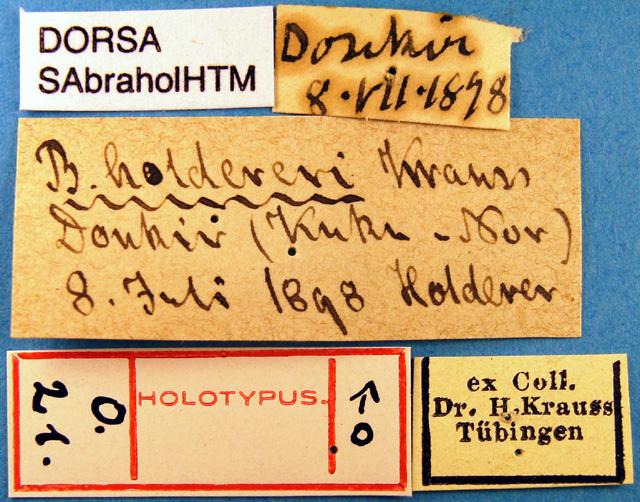 DORSA
SAbraholHTM
Donkir
8.VII.1898
B. holdereri Krauss
Donkir (Kuku-Nor)
8. Juli 1898 Holderer
O.
21.
HOLOTYPUS.
♂
ex Coll.
Dr. H. Krauss
Tübingen